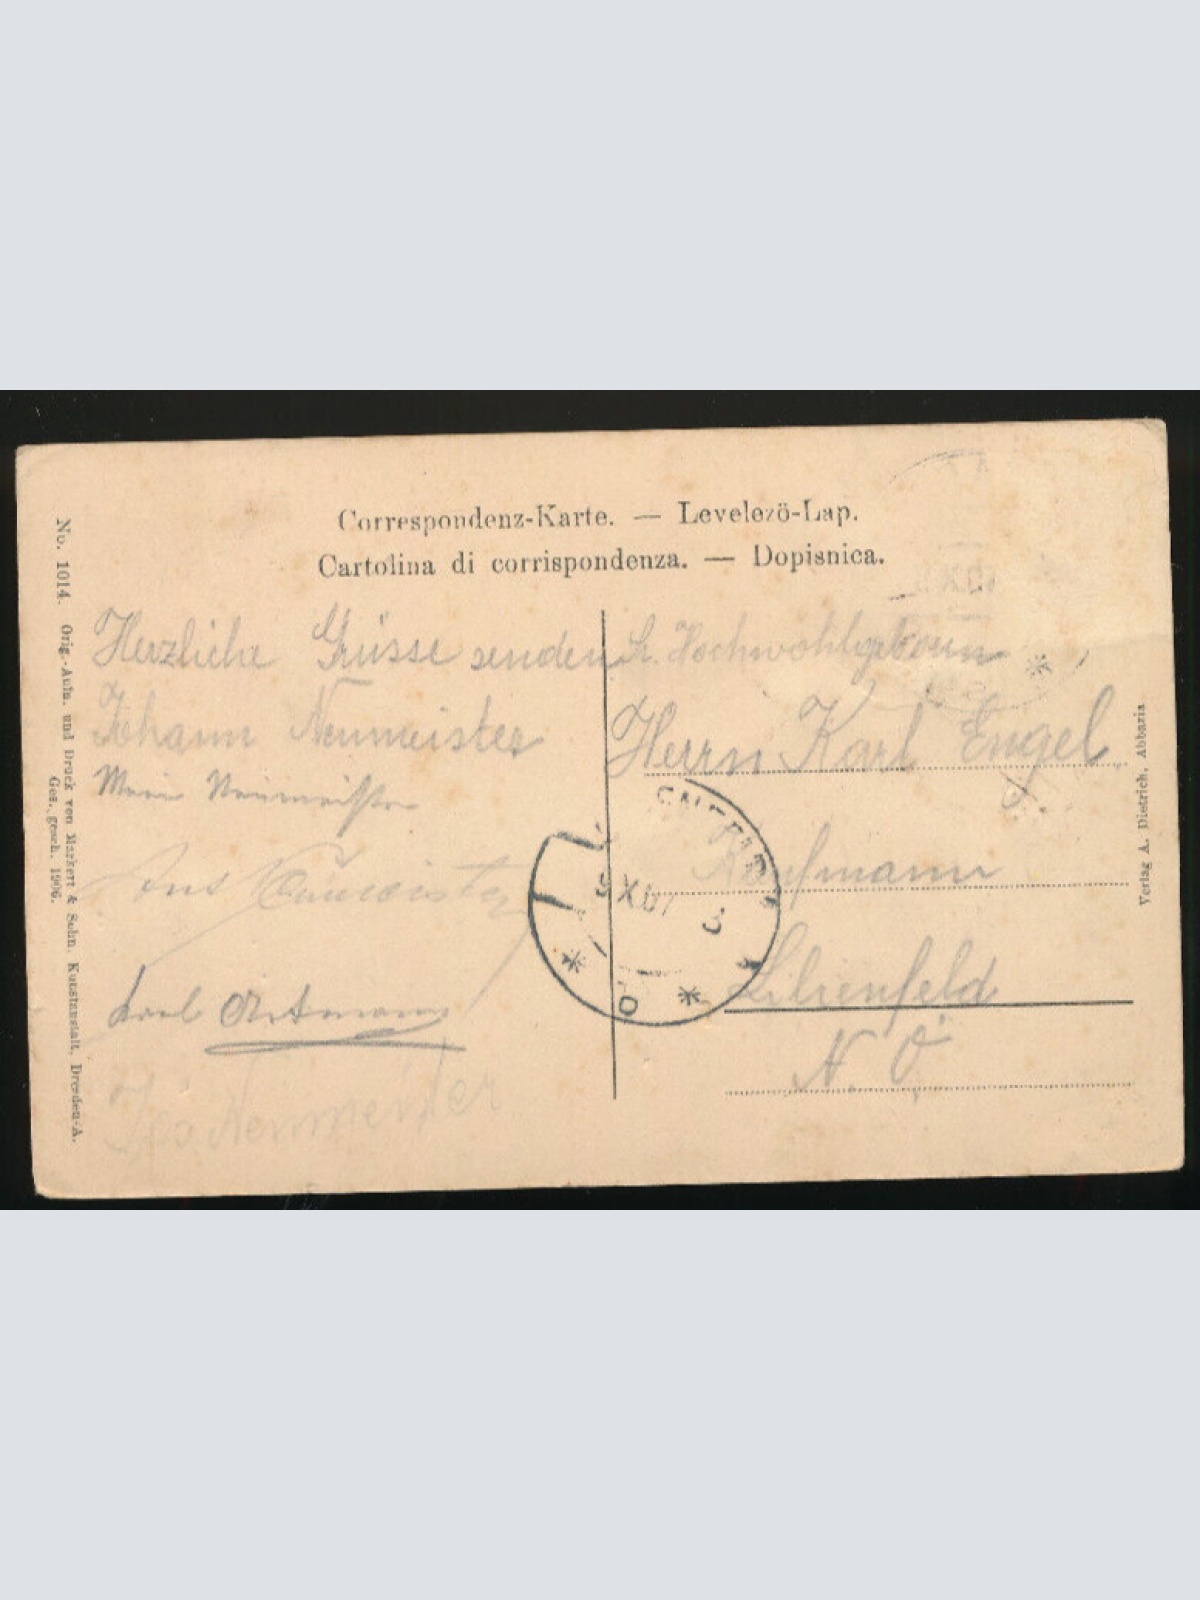 Correspondenz-Karte. — Levelező-Lap.
Cartolina di corrispondenza. — Dopisnica.
No. 1014. Orig.-Aufn. und Druck von Markert & Sohn, Kunstanstalt, Dresden-A.
Ges. gesch. 1906.
Herzliche Grüsse senden
Johann Neumeister
Neumeister
Karl
Neumeister
Sr. Hochwohlgeboren
Herrn Karl Engel
Kaufmann
Lilienfeld
N. Ö.
9 X 07
Verlag A. Dietrich, Abbazia